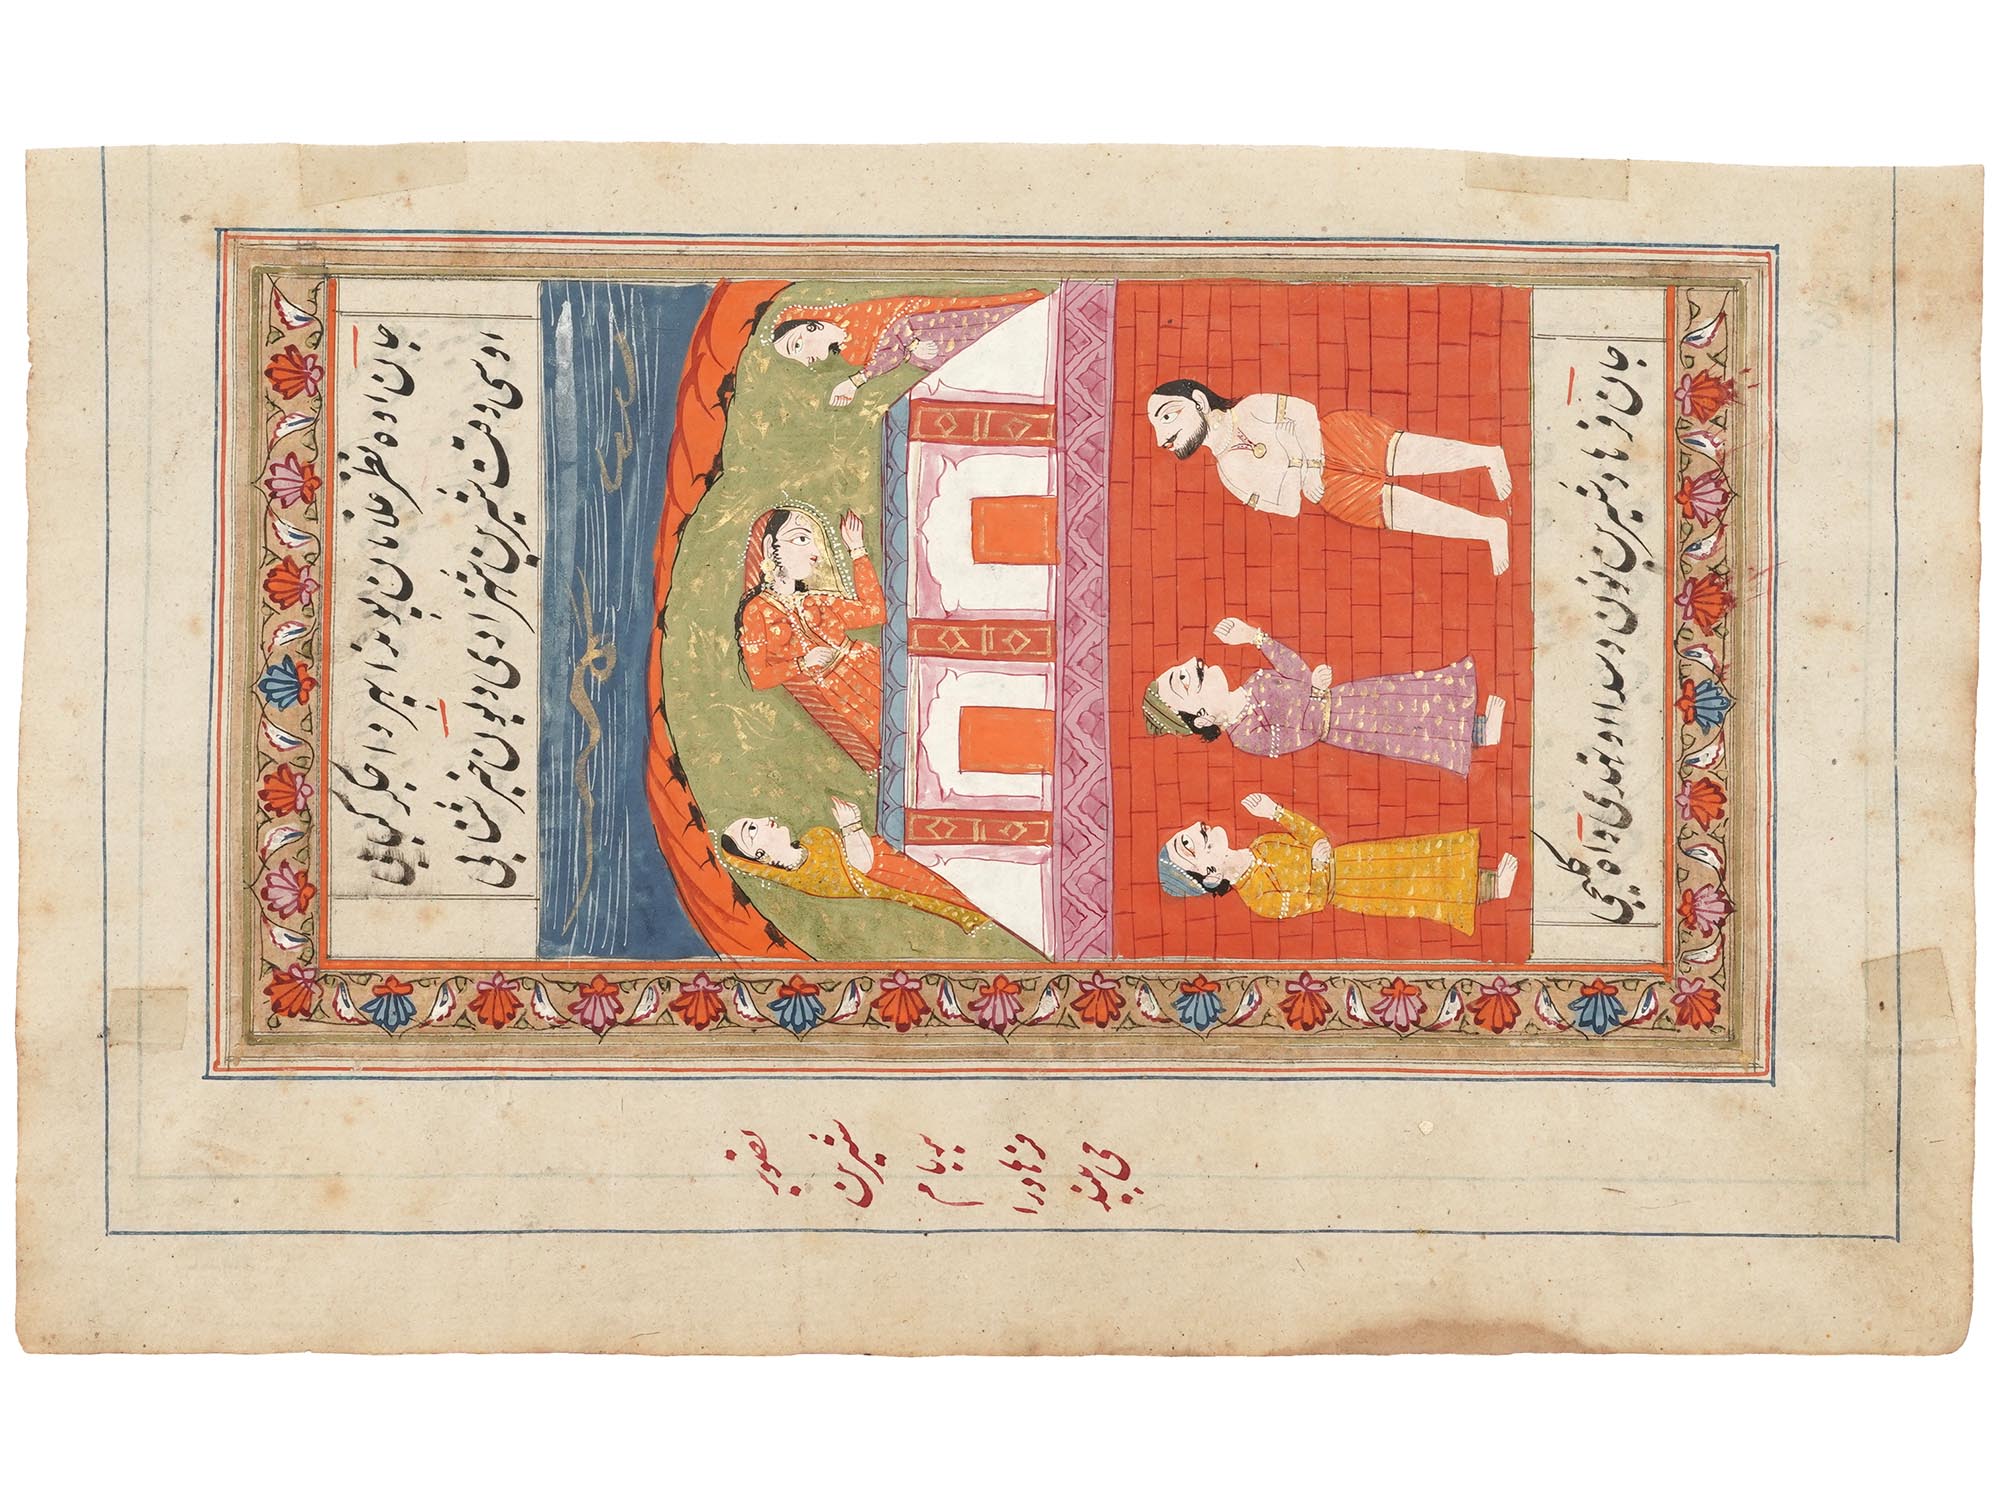 جان اوه نظر غلامان پوندا بهر دا جگر کبابی
اوسی وقت شیرین شهزادی دیون خبر شتابی
تصویر
شیرین
بر بام
فرهاد را
می بیند
جان فرهاد شیرین نون دسدا اوتهدی واه کلیجی